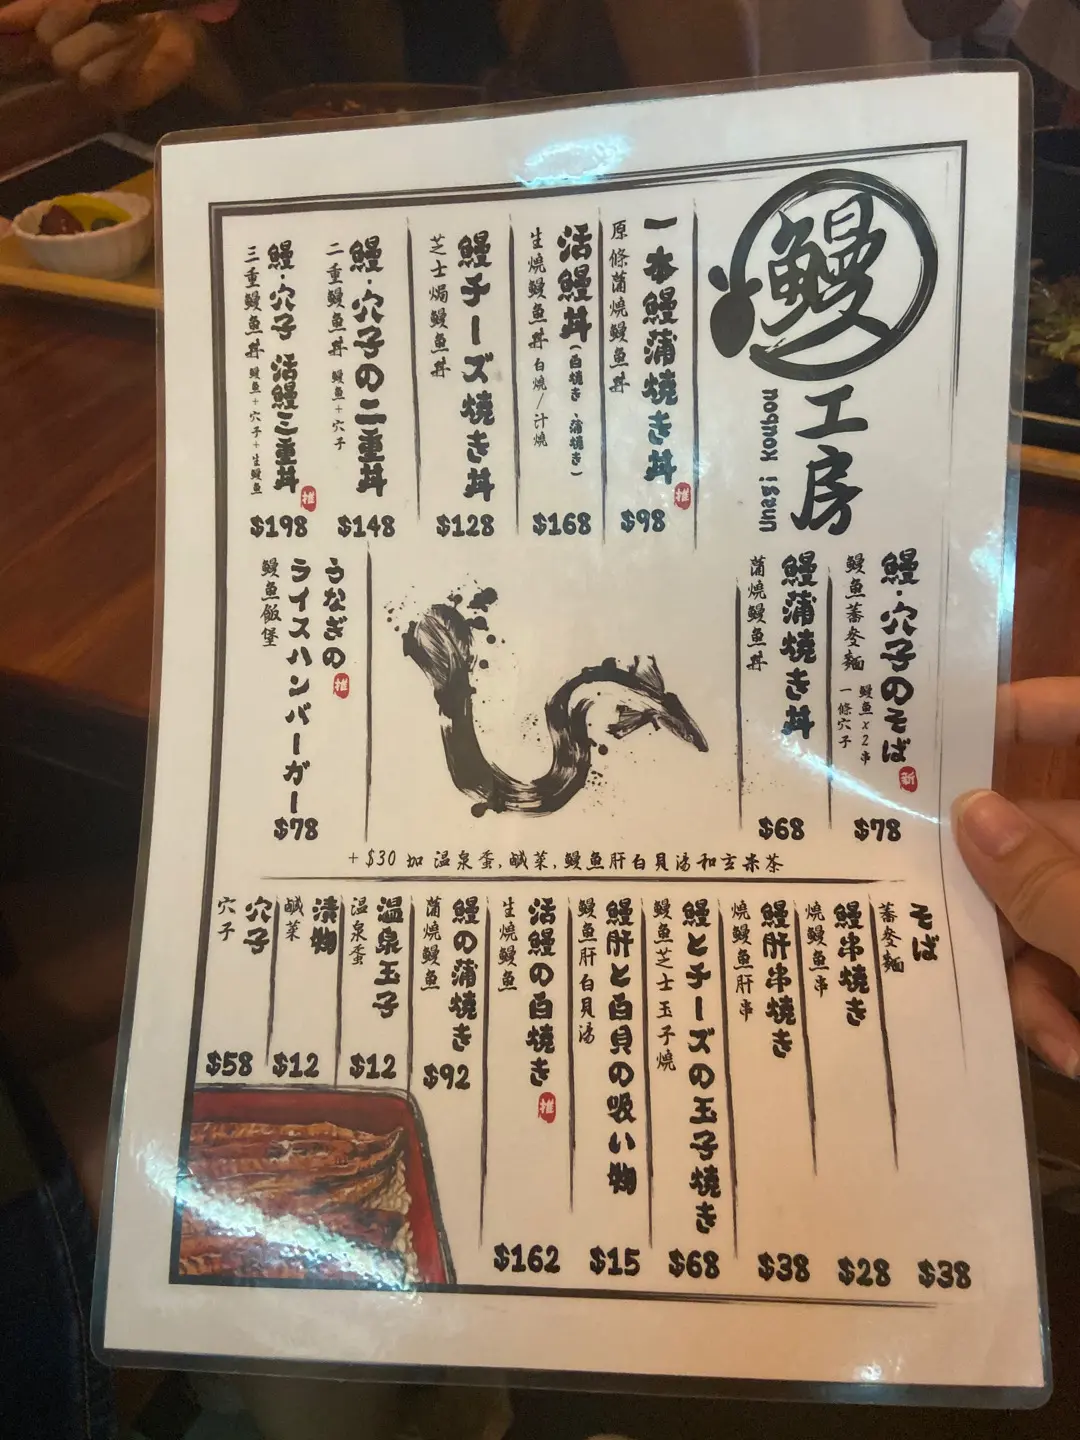 鰻
工房
unagi koubou
一本鰻蒲焼き丼 推
原條蒲燒鰻魚丼
$98
活鰻丼(白焼き・蒲焼き)
生燒鰻魚丼 白燒/汁燒
$168
鰻チーズ焼き丼
芝士焗鰻魚丼
$128
鰻・穴子の二重丼
二重鰻魚丼 鰻魚+穴子
$148
鰻・穴子 活鰻三重丼 推
三重鰻魚丼 鰻魚+穴子+生鰻魚
$198
鰻・穴子のそば 新
鰻魚蕎麥麵 鰻魚x2串
一條穴子
$78
鰻蒲焼き丼
蒲燒鰻魚丼
$68
うなぎの 推
ライスハンバーガー
鰻魚飯堡
$78
+$30 加 温泉蛋,鹹菜,鰻魚肝白貝湯和玄米茶
そば
蕎麥麵
$38
鰻串焼き
燒鰻魚串
$28
鰻肝串焼き
燒鰻魚肝串
$38
鰻とチーズの玉子焼き
鰻魚芝士玉子燒
$68
鰻肝と白貝の吸い物
鰻魚肝白貝湯
$15
活鰻の白焼き 推
生燒鰻魚
$162
鰻の蒲焼き
蒲燒鰻魚
$92
温泉玉子
温泉蛋
$12
漬物
鹹菜
$12
穴子
穴子
$58